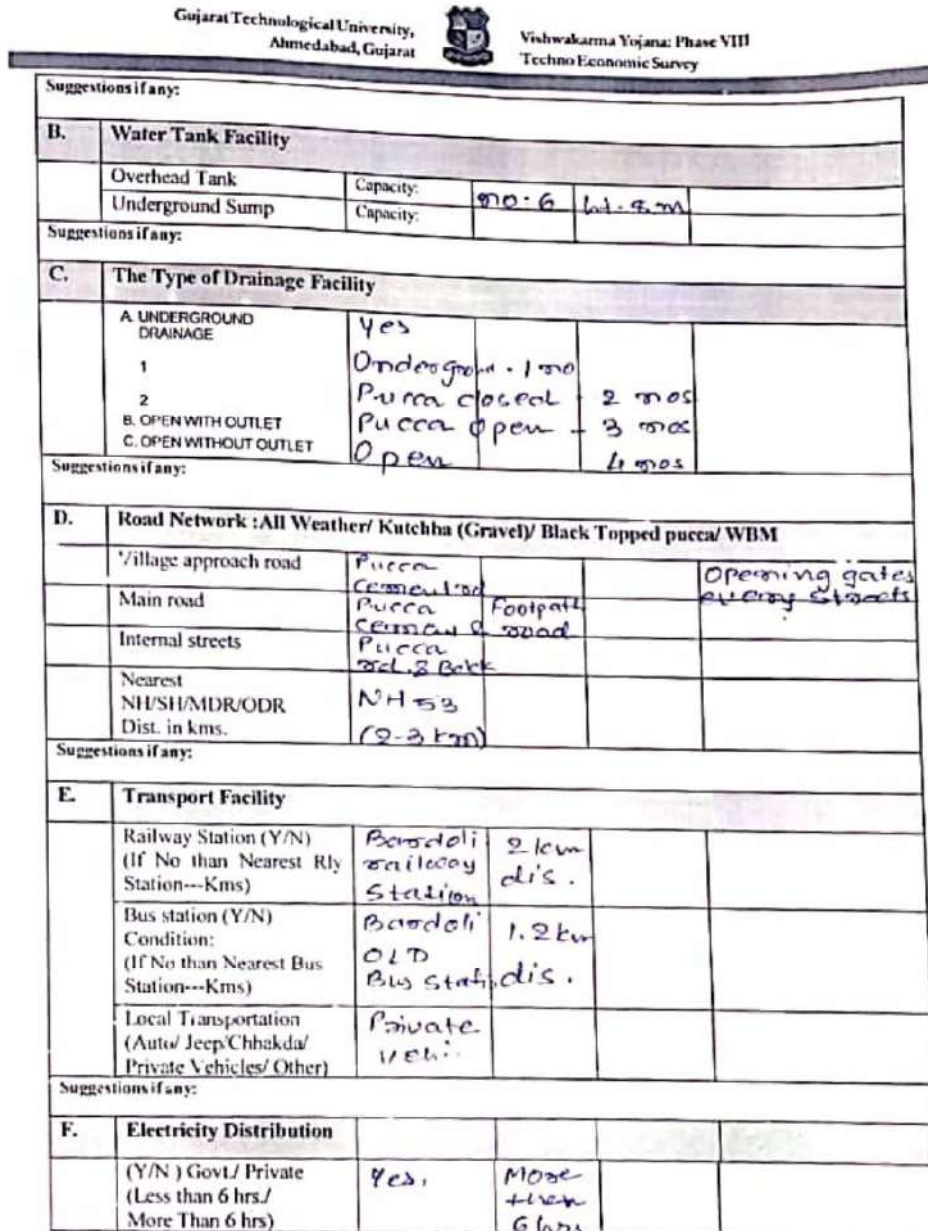 Gujarat Technological University,
Ahmedabad, Gujarat
Vishwakarma Yojana: Phase VIII
Techno Economic Survey
Suggestions if any:
B. Water Tank Facility
Overhead Tank Capacity: no. 6 ht. 8 m
Underground Sump Capacity:
Suggestions if any:
C. The Type of Drainage Facility
A. UNDERGROUND
DRAINAGE
Yes
1 Undergrou. 1 no
2 Pucca closed - 2 nos
B. OPEN WITH OUTLET Pucca open - 3 nos
C. OPEN WITHOUT OUTLET Open 4 nos
Suggestions if any:
D. Road Network :All Weather/ Kutchha (Gravel)/ Black Topped pucca/ WBM
Village approach road Pucca
Cement rd
Opening gates
every streets
Main road Pucca Footpath
Cement & road
Internal streets Pucca
rd. &
Nearest
NH/SH/MDR/ODR
Dist. in kms.
NH 53
(2-3 km)
Suggestions if any:
E. Transport Facility
Railway Station (Y/N)
(If No than Nearest Rly
Station---Kms)
Bardoli
railway
Station
2 km
dis.
Bus station (Y/N)
Condition:
(If No than Nearest Bus
Station---Kms)
Bardoli
OLD
Bus Stati.
1.2 km
dis.
Local Transportation
(Auto/ Jeep/Chhakda/
Private Vehicles/ Other)
Private
vehi.
Suggestions if any:
F. Electricity Distribution
(Y/N ) Govt./ Private
(Less than 6 hrs./
More Than 6 hrs)
Yes.
More
then
6 hrs